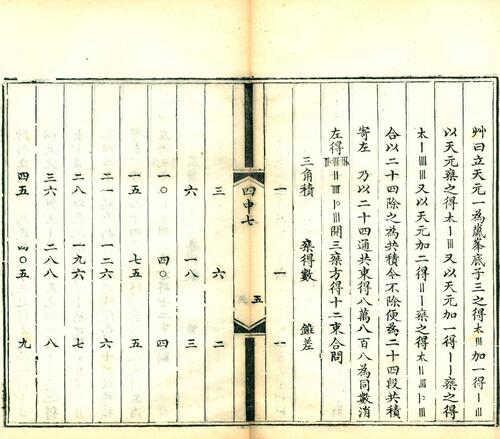 艸曰立天元一為嵐峯底子三之得太 加一得
以天元桼之得太 又以天元加一得 桼之得
太 又以天元加二得 桼之得太
合以二十四除之為共積今不除便為二十四段共積
寄左 乃以二十四通共束得八萬八百八為同數消
左得 開三桼方得十二束合問
三角積 桼得數 錐差
一 一 一
四中七 五
三 六 二
六 一八 三
一〇 四〇 四
一五 七五 五
二一 一二六 六
二八 一九六 七
三六 二八八 八
四五 四〇五 九